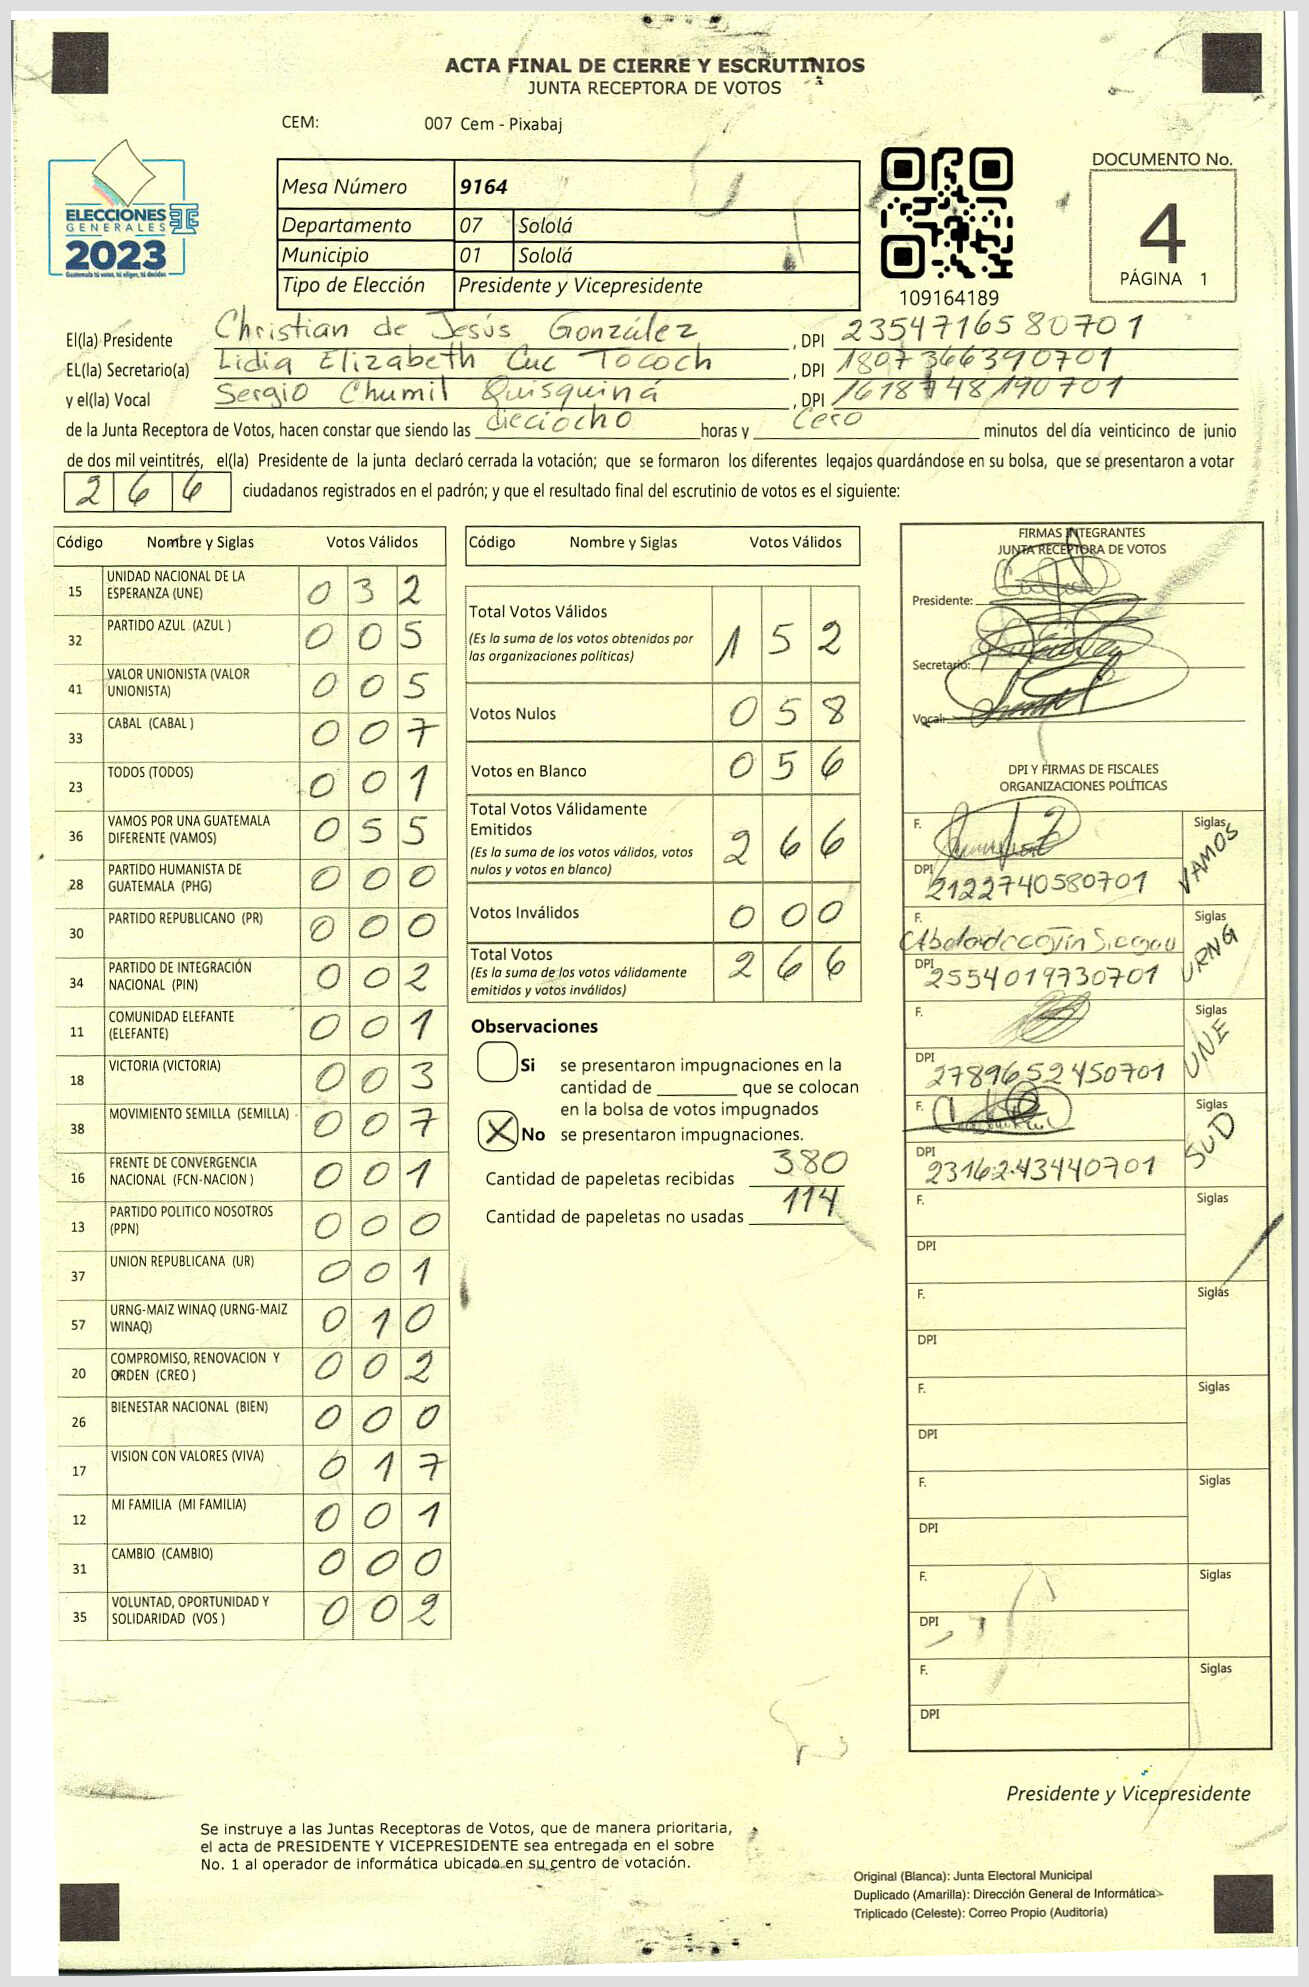 ACTA FINAL DE CIERRE Y ESCRUTINIOS
JUNTA RECEPTORA DE VOTOS
CEM: 007 Cem - Pixabaj
ELECCIONES
GENERALES
2023
Guatemala tú votas, tú eliges, tú decides
Mesa Número 9164
Departamento 07 Sololá
Municipio 01 Sololá
Tipo de Elección Presidente y Vicepresidente
109164189
DOCUMENTO No.
4
PÁGINA 1
El(la) Presidente Christian de Jesús González , DPI 2354716580701
EL(la) Secretario(a) Lidia Elizabeth Cuc Tococh , DPI 1807366390701
y el(la) Vocal Sergio Chumil Quisquiná , DPI 1618748190701
de la Junta Receptora de Votos, hacen constar que siendo las dieciocho horas y Cero minutos del día veinticinco de junio
de dos mil veintitrés, el(la) Presidente de la junta declaró cerrada la votación; que se formaron los diferentes legajos guardándose en su bolsa, que se presentaron a votar
266 ciudadanos registrados en el padrón; y que el resultado final del escrutinio de votos es el siguiente:
Código Nombre y Siglas Votos Válidos
15 UNIDAD NACIONAL DE LA ESPERANZA (UNE) 032
32 PARTIDO AZUL (AZUL ) 005
41 VALOR UNIONISTA (VALOR UNIONISTA) 005
33 CABAL (CABAL ) 007
23 TODOS (TODOS) 001
36 VAMOS POR UNA GUATEMALA DIFERENTE (VAMOS) 055
28 PARTIDO HUMANISTA DE GUATEMALA (PHG) 000
30 PARTIDO REPUBLICANO (PR) 000
34 PARTIDO DE INTEGRACIÓN NACIONAL (PIN) 002
11 COMUNIDAD ELEFANTE (ELEFANTE) 001
18 VICTORIA (VICTORIA) 003
38 MOVIMIENTO SEMILLA (SEMILLA) 007
16 FRENTE DE CONVERGENCIA NACIONAL (FCN-NACION ) 001
13 PARTIDO POLITICO NOSOTROS (PPN) 000
37 UNION REPUBLICANA (UR) 001
57 URNG-MAIZ WINAQ (URNG-MAIZ WINAQ) 010
20 COMPROMISO, RENOVACION Y ORDEN (CREO ) 002
26 BIENESTAR NACIONAL (BIEN) 000
17 VISION CON VALORES (VIVA) 017
12 MI FAMILIA (MI FAMILIA) 001
31 CAMBIO (CAMBIO) 000
35 VOLUNTAD, OPORTUNIDAD Y SOLIDARIDAD (VOS ) 002
Código Nombre y Siglas Votos Válidos
Total Votos Válidos 152
(Es la suma de los votos obtenidos por
las organizaciones políticas)
Votos Nulos 058
Votos en Blanco 056
Total Votos Válidamente
Emitidos 266
(Es la suma de los votos válidos, votos
nulos y votos en blanco)
Votos Inválidos 000
Total Votos 266
(Es la suma de los votos válidamente
emitidos y votos inválidos)
Observaciones
Si se presentaron impugnaciones en la
cantidad de ________ que se colocan
en la bolsa de votos impugnados
X No se presentaron impugnaciones.
Cantidad de papeletas recibidas 380
Cantidad de papeletas no usadas 114
FIRMAS INTEGRANTES
JUNTA RECEPTORA DE VOTOS
Presidente:
Secretario:
Vocal:
DPI Y FIRMAS DE FISCALES
ORGANIZACIONES POLÍTICAS
F. Siglas VAMOS
DPI 2122740580701
F. Siglas URNG
DPI 2554019730701
F. Siglas UNE
DPI 2789652450701
F. Siglas SUD
DPI 2316243440701
F. Siglas
DPI
F. Siglas
DPI
F. Siglas
DPI
F. Siglas
DPI
F. Siglas
DPI
F. Siglas
DPI
Presidente y Vicepresidente
Se instruye a las Juntas Receptoras de Votos, que de manera prioritaria,
el acta de PRESIDENTE Y VICEPRESIDENTE sea entregada en el sobre
No. 1 al operador de informática ubicado en su centro de votación.
Original (Blanca): Junta Electoral Municipal
Duplicado (Amarilla): Dirección General de Informática
Triplicado (Celeste): Correo Propio (Auditoría)